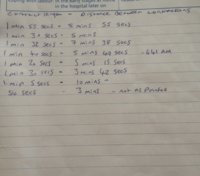 in the hospital later on
Contraction - Distance Between Contractions
1 min 55 secs - 5 mins 55 secs
1 min 30 secs - 5 mins
1 min 38 secs - 7 mins 38 secs
1 min 40 secs - 5 mins 40 secs - 6:41 AM
1 min 20 secs - 5 mins 15 secs
1 min 30 secs - 3 mins 42 secs
1 min 5 secs - 10 mins -
50 secs - 3 mins - not as Painful